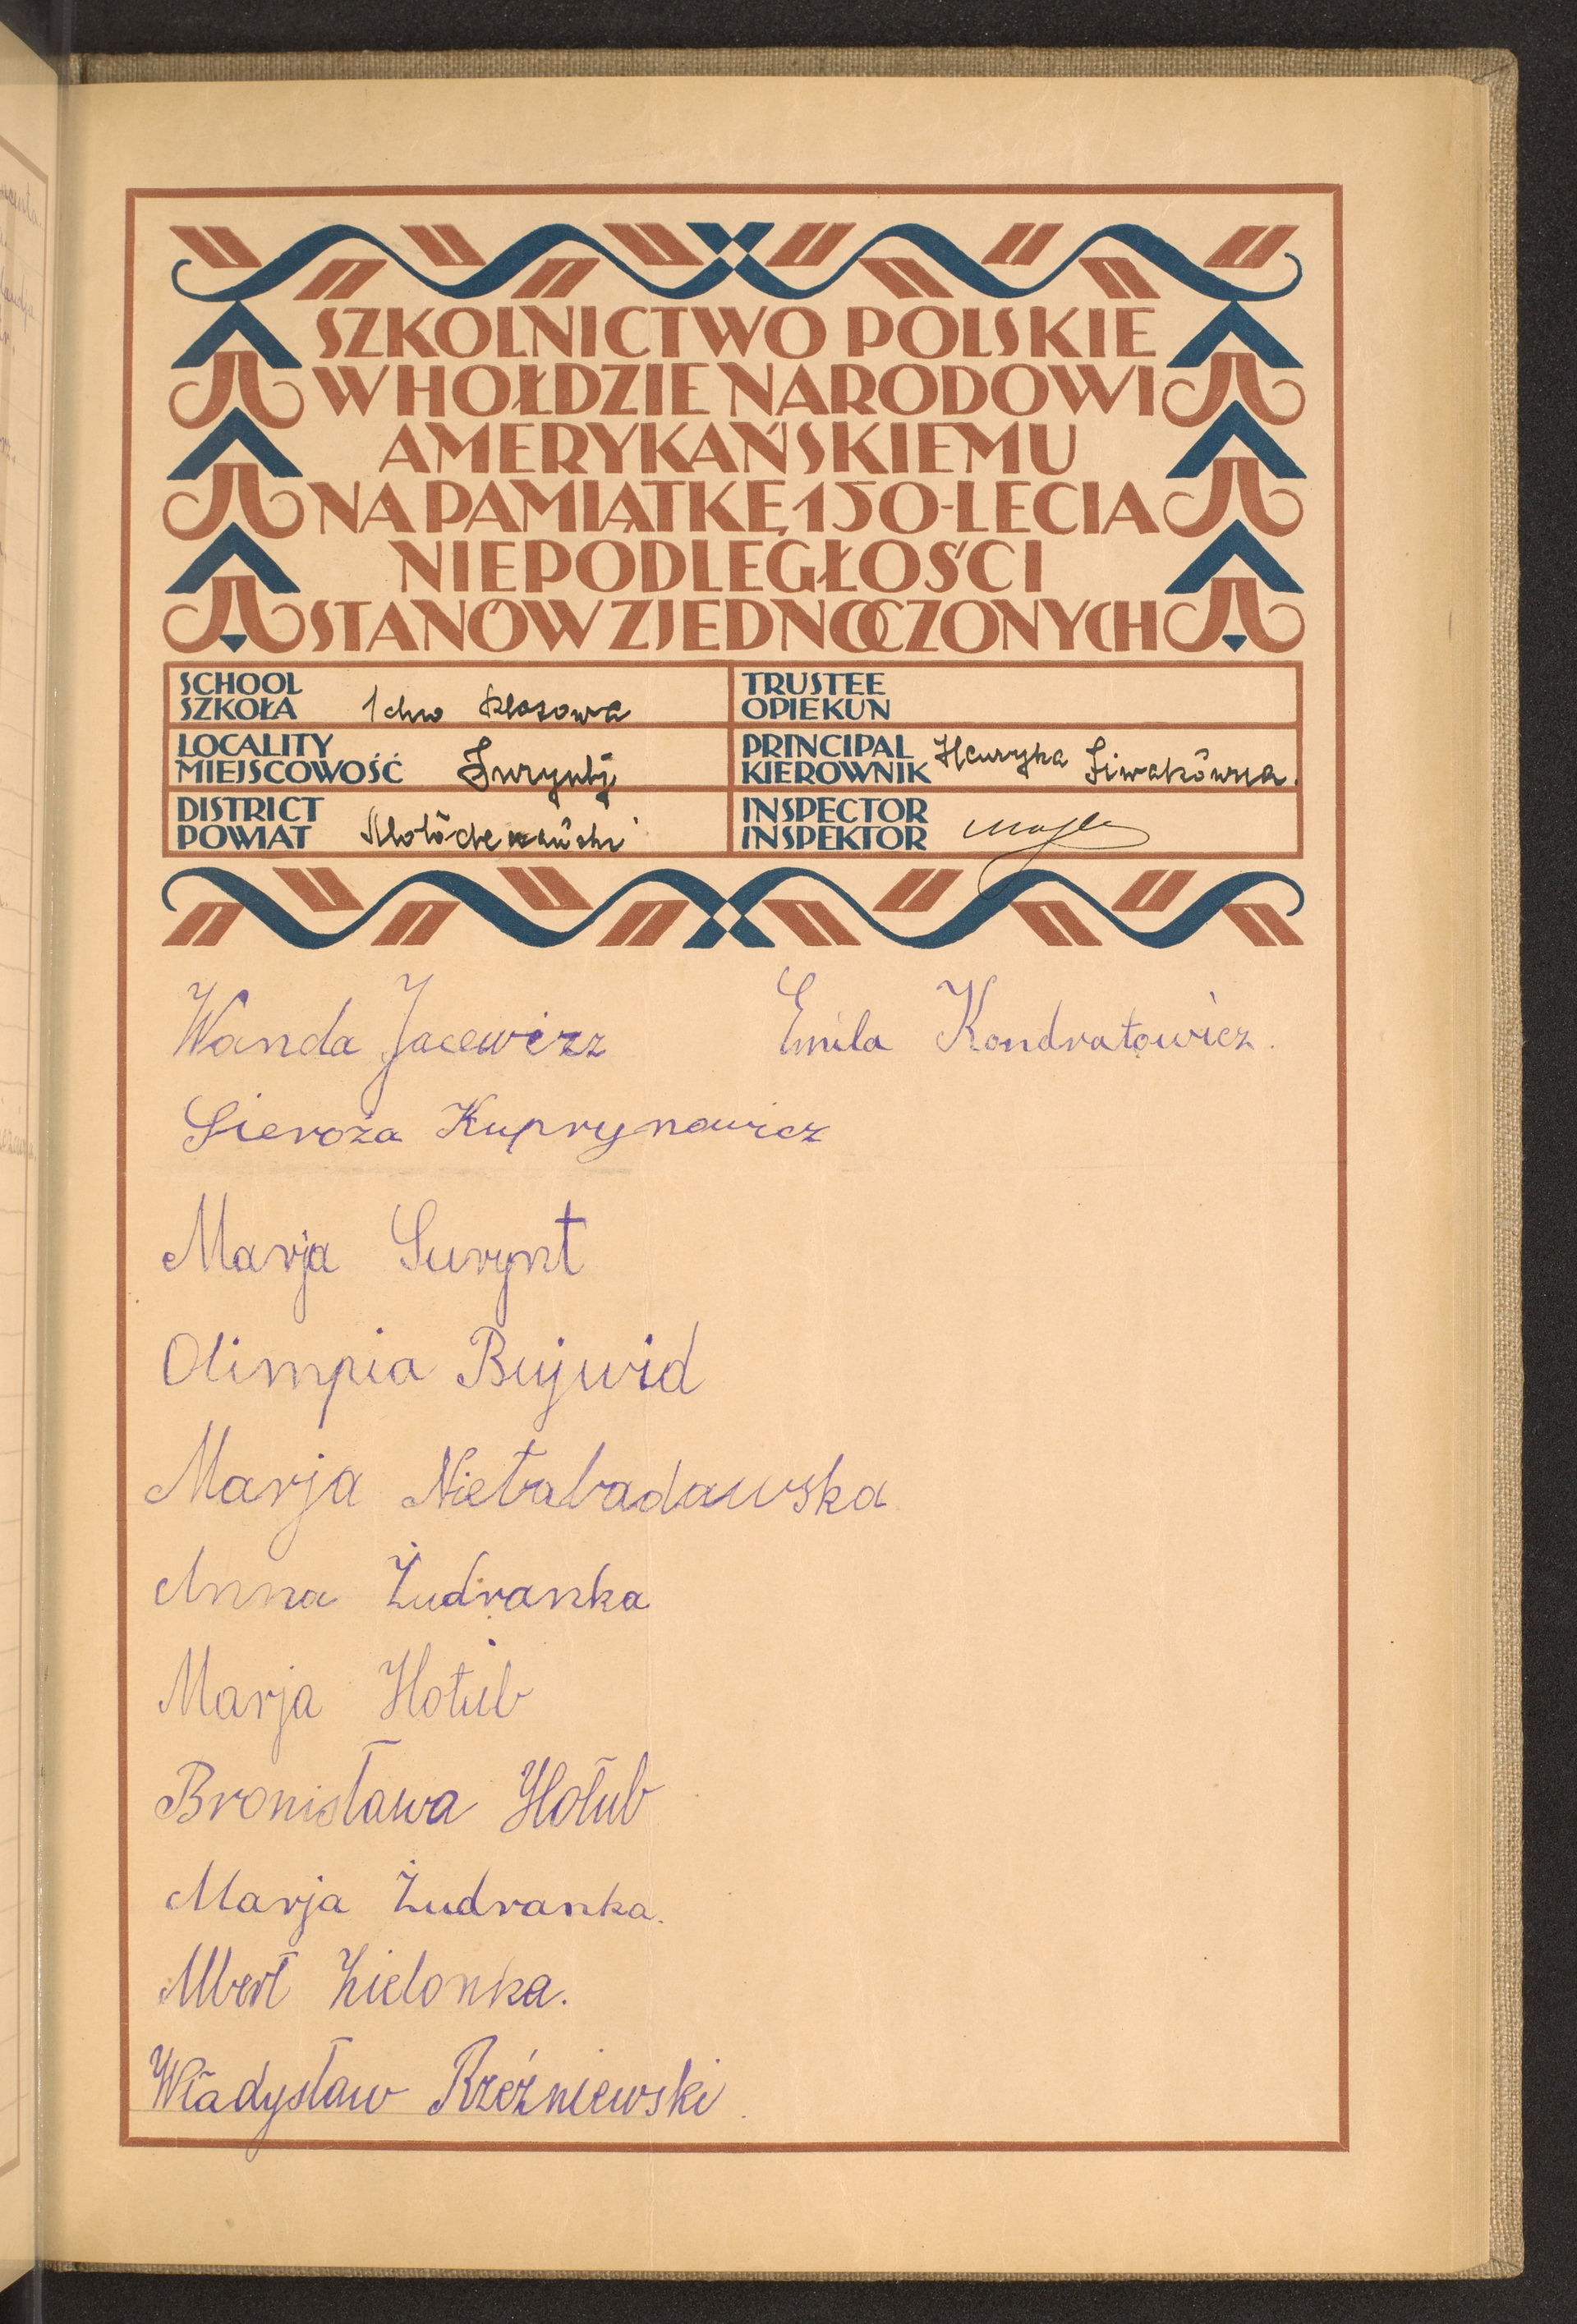 SZKOLNICTWO POLSKIE
W HOŁDZIE NARODOWI
AMERYKAŃSKIEMU
NA PAMIĄTKĘ 150-LECIA
NIEPODLEGŁOŚCI
STANÓW ZJEDNOCZONYCH
SCHOOL
SZKOŁA 1 chwo klasowa
TRUSTEE
OPIEKUN
LOCALITY
MIEJSCOWOŚĆ Surynty
PRINCIPAL
KIEROWNIK Henryka Siwakówna.
DISTRICT
POWIAT
INSPECTOR
INSPEKTOR
Wanda Jacewizz Emila Kondratowicz.
Sieroża Kuprynowicz
Marja Surynt
Olimpia Bujwid
Marja Nietabadawska
Anna Żudranka
Marja Hołub
Bronisława Hołub
Marja Żudranka.
Albert Zielonka.
Władysław Rzeźniewski.